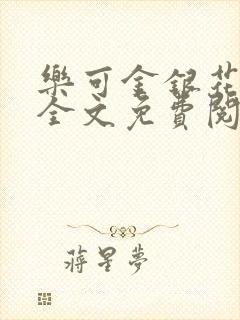 樂可金銀花
全文免費閱
蔣星夢